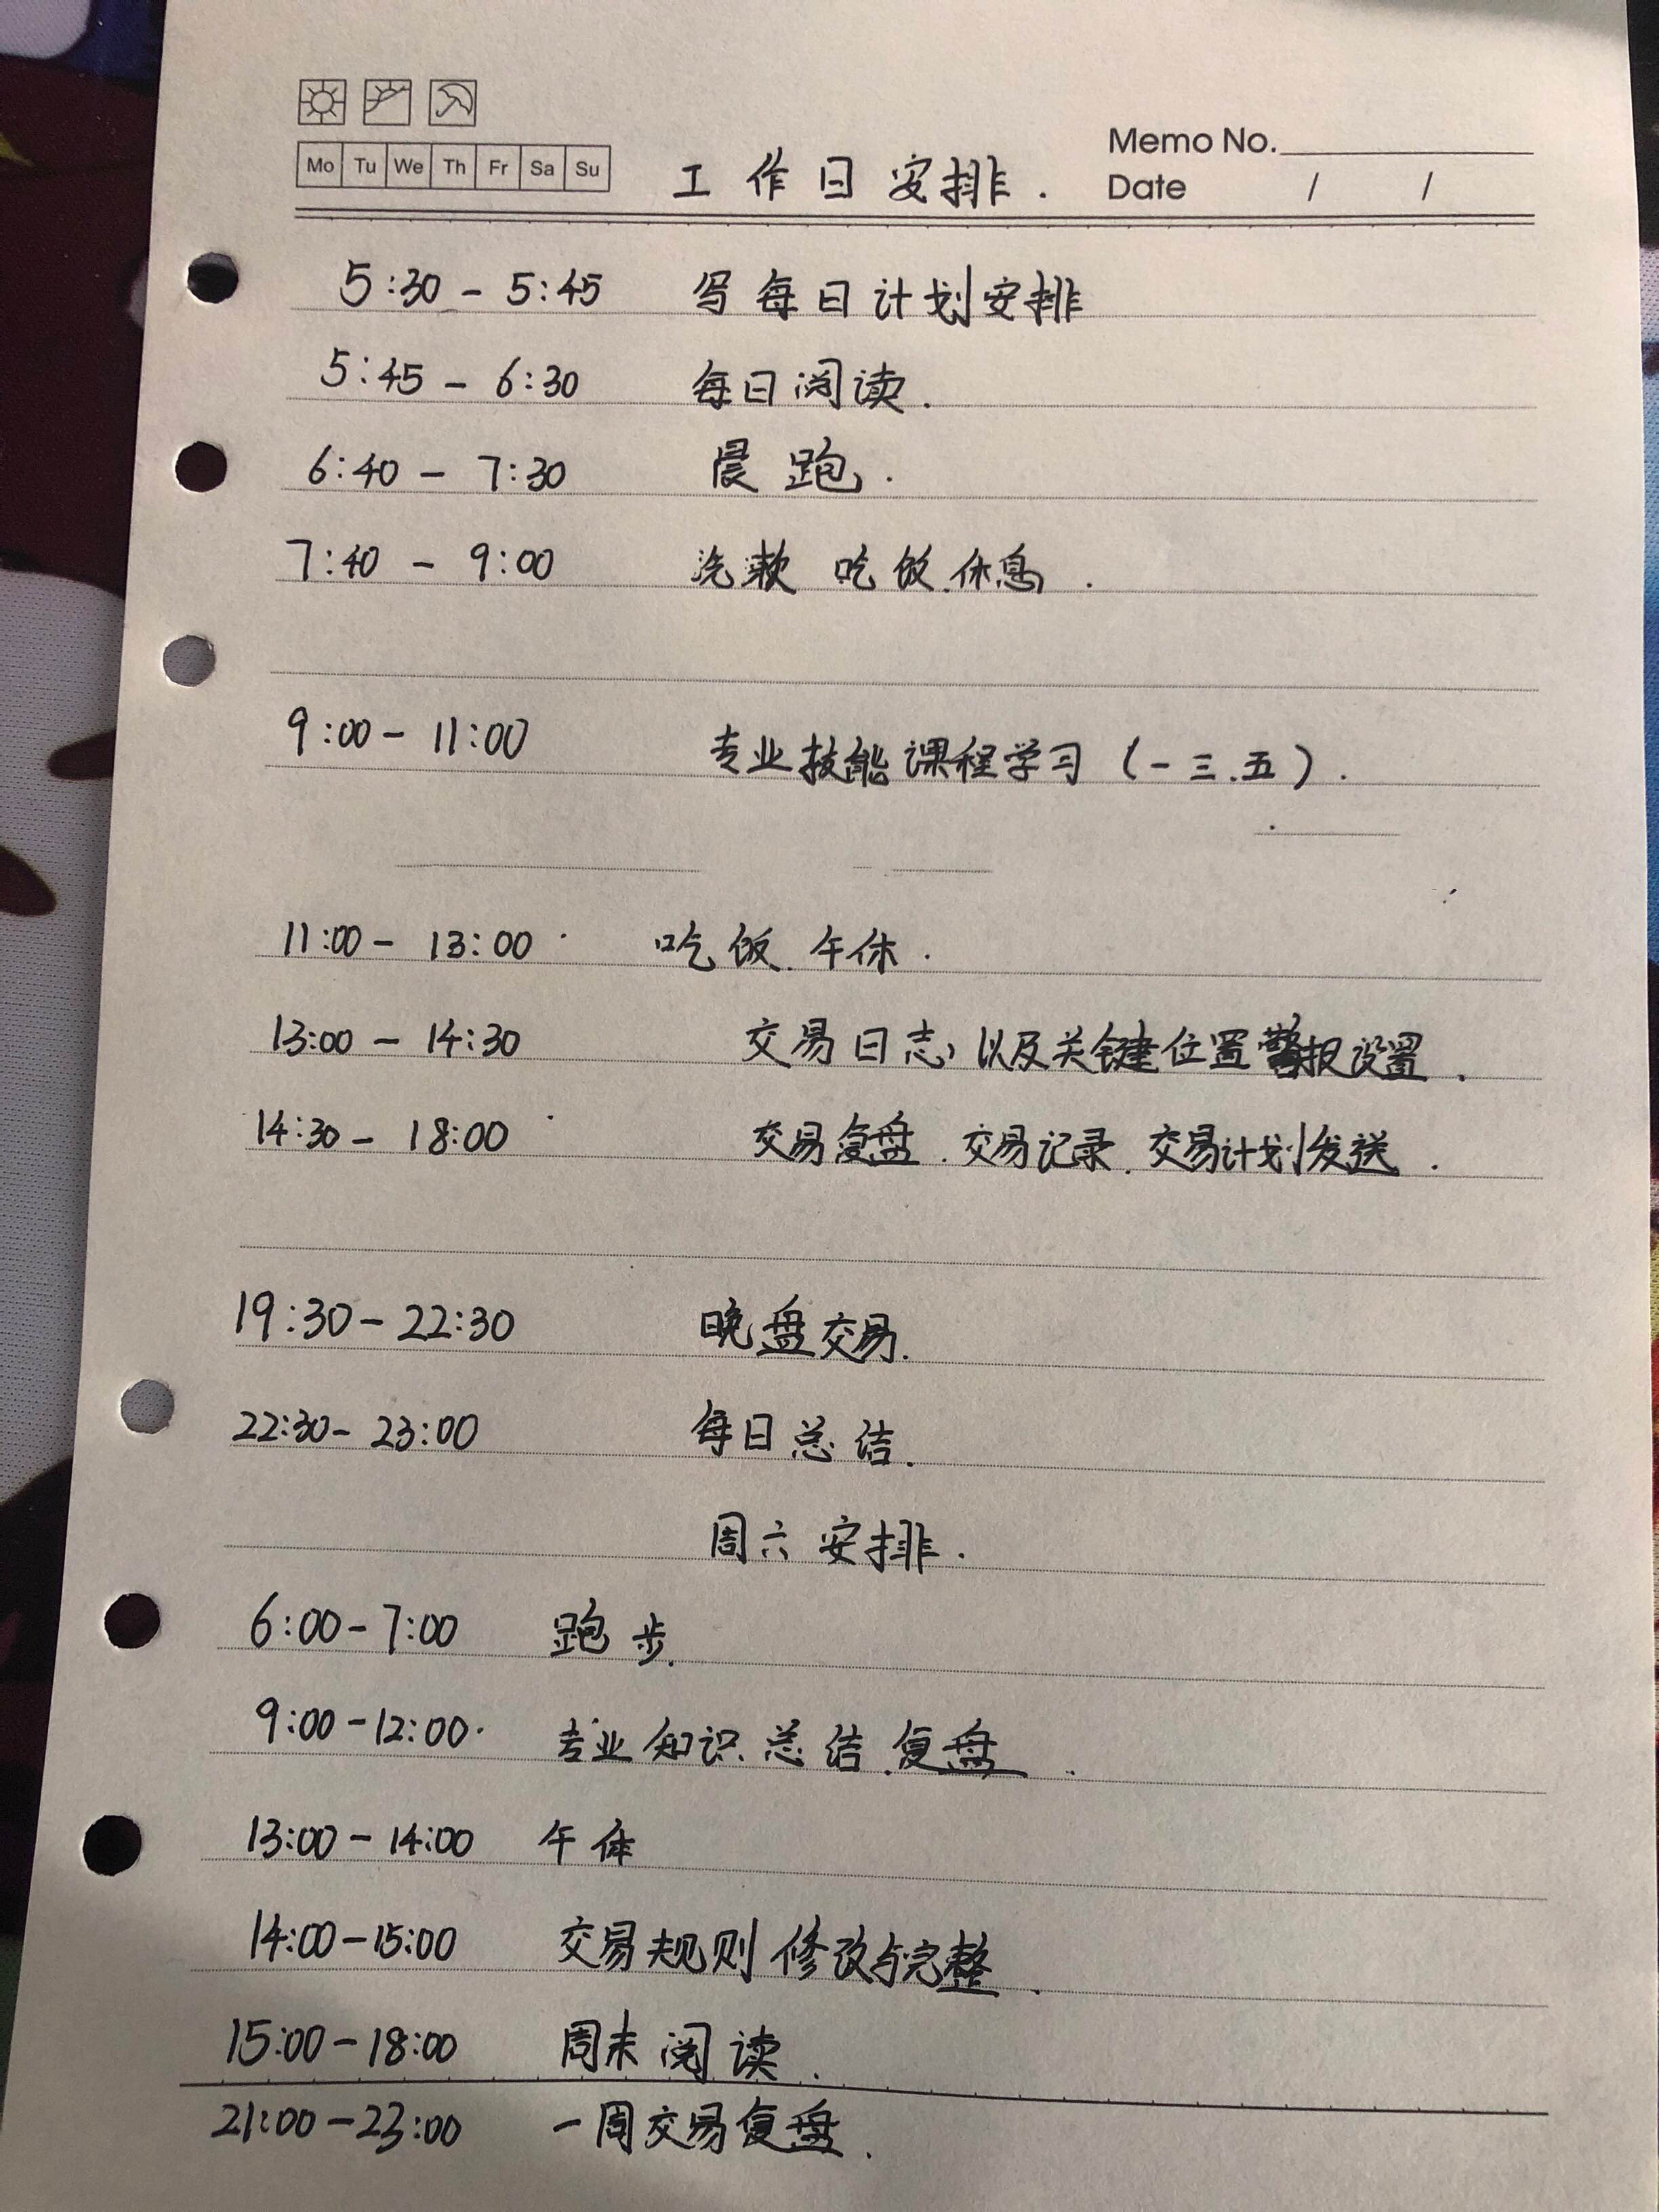 Mo Tu We Th Fr Sa Su
工作日安排.
Memo No.
Date / /
5:30 - 5:45 写每日计划安排
5:45 - 6:30 每日阅读.
6:40 - 7:30 晨跑.
7:40 - 9:00 洗漱 吃饭.休息.
9:00 - 11:00 专业技能课程学习 (一三.五).
11:00 - 13:00 吃饭.午休.
13:00 - 14:30 交易日志,以及关键位置警报设置.
14:30 - 18:00 交易复盘.交易记录.交易计划发送.
19:30 - 22:30 晚盘交易.
22:30 - 23:00 每日总结.
周六安排.
6:00 - 7:00 跑步.
9:00 - 12:00. 专业知识总结.复盘.
13:00 - 14:00 午休
14:00 - 15:00 交易规则修改与完整.
15:00 - 18:00 周末阅读.
21:00 - 23:00 一周交易复盘.